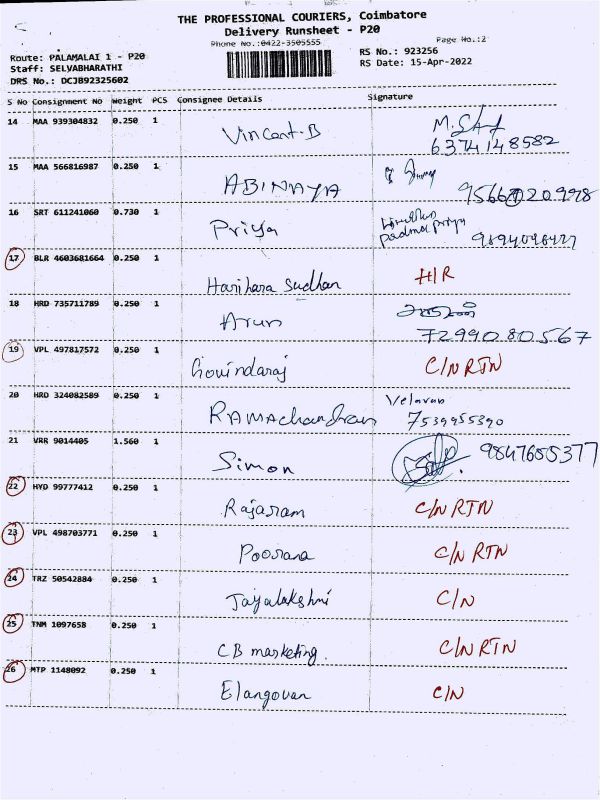 THE PROFESSIONAL COURIERS, Coimbatore
Delivery Runsheet - P20
Phone No.:0422-3505555
Page No.:2
Route: PALAMALAI 1 - P20
RS No.: 923256
Staff: SELVABHARATHI
RS Date: 15-Apr-2022
DRS No.: DCJB92325602
S No Consignment No Weight PCS Consignee Details Signature
14 MAA 939304832 0.250 1 Vincent.B
6374148582
15 MAA 566816987 0.250 1 ABINAYA
16 SRT 611241060 0.730 1 Priya
padma priya
17 BLR 4603681664 0.250 1 Harihara Sudhan H/R
18 HRD 735711789 0.250 1 Arun
7299080567
19 VPL 497817572 0.250 1 Govindaraj C/N RTN
20 HRD 324082589 0.250 1 RAMAchandran Velavan
7539955390
21 VRR 9014405 1.560 1 Simon 9847655377
22 HYD 99777412 0.250 1 Rajaram C/N RTN
23 VPL 498703771 0.250 1 Poorana C/N RTN
24 TRZ 50542884 0.250 1 Jayalakshmi C/N
25 TNM 1097658 0.250 1 CB marketing. C/N RTN
26 MTP 1148092 0.250 1 Elangovan C/N